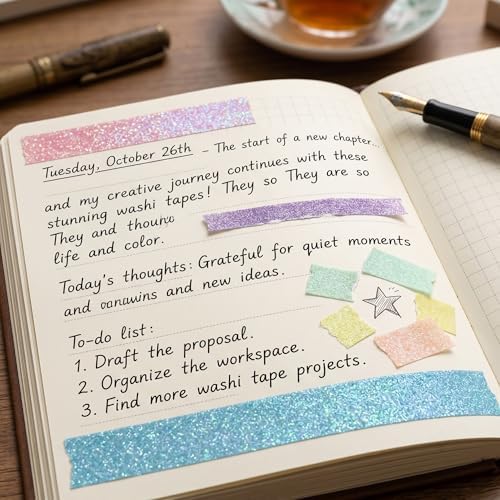 Tuesday, October 26th – The start of a new chapter...
and my creative journey continues with these
stunning washi tapes! They so They are so
They and
life and color.
Today's thoughts: Grateful for quiet moments
and and new ideas.
To-do list:
1. Draft the proposal.
2. Organize the workspace.
3. Find more washi tape projects.